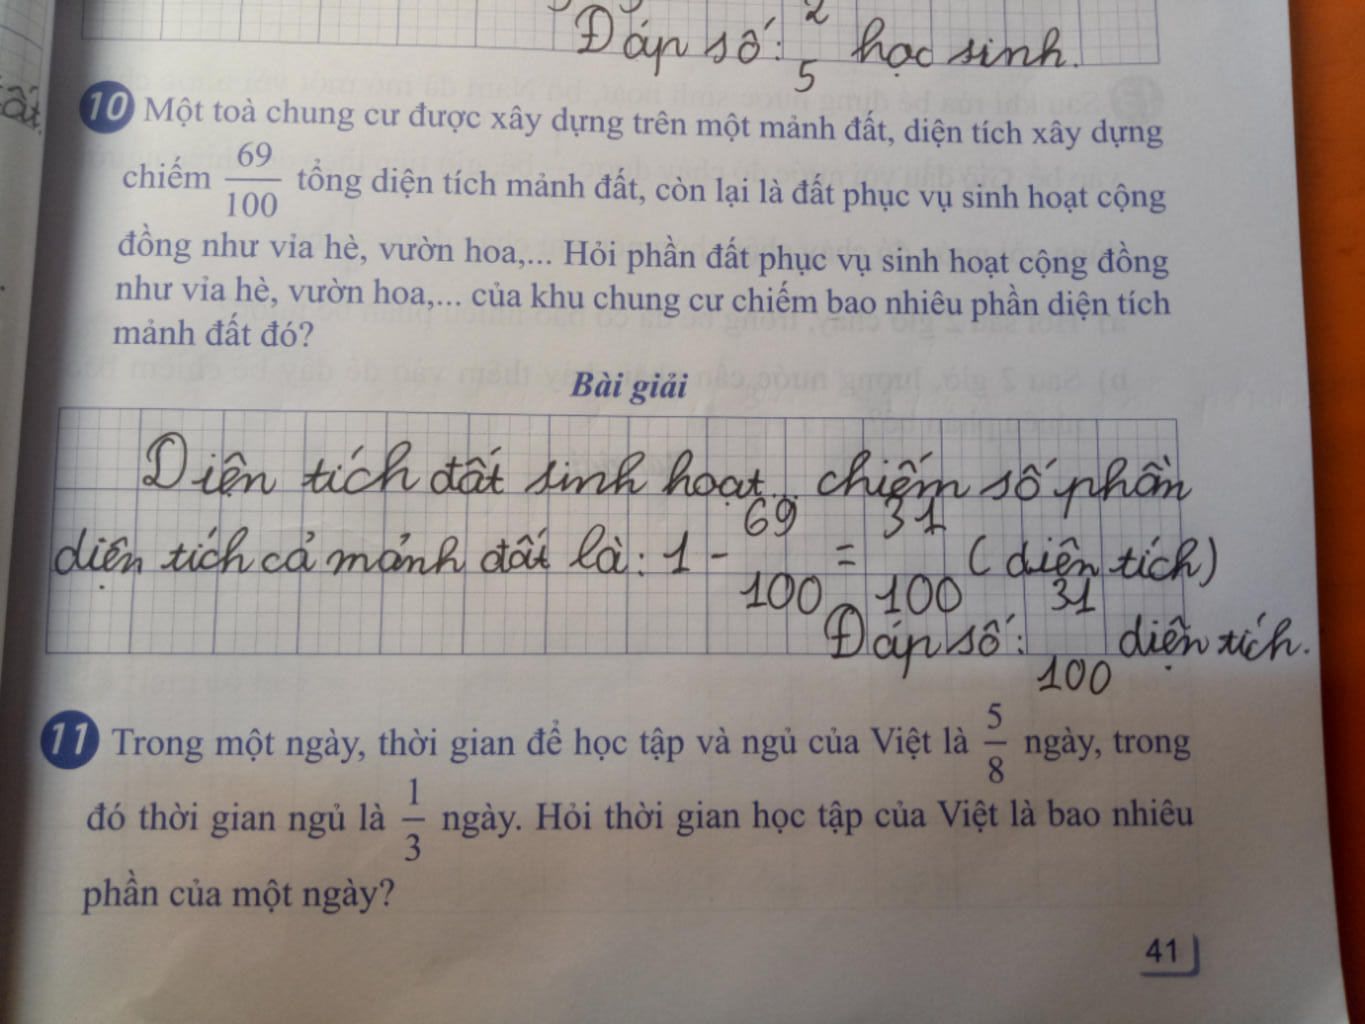 Đáp số: 2/5 học sinh.
ất.
10 Một toà chung cư được xây dựng trên một mảnh đất, diện tích xây dựng
chiếm 69/100 tổng diện tích mảnh đất, còn lại là đất phục vụ sinh hoạt cộng
đồng như vỉa hè, vườn hoa,... Hỏi phần đất phục vụ sinh hoạt cộng đồng
như vỉa hè, vườn hoa,... của khu chung cư chiếm bao nhiêu phần diện tích
mảnh đất đó?
Bài giải
Diện tích đất sinh hoạt... chiếm số phần
diện tích cả mảnh đất là: 1 - 69/100 = 31/100 (diện tích)
Đáp số: 31/100 diện tích.
11 Trong một ngày, thời gian để học tập và ngủ của Việt là 5/8 ngày, trong
đó thời gian ngủ là 1/3 ngày. Hỏi thời gian học tập của Việt là bao nhiêu
phần của một ngày?
41